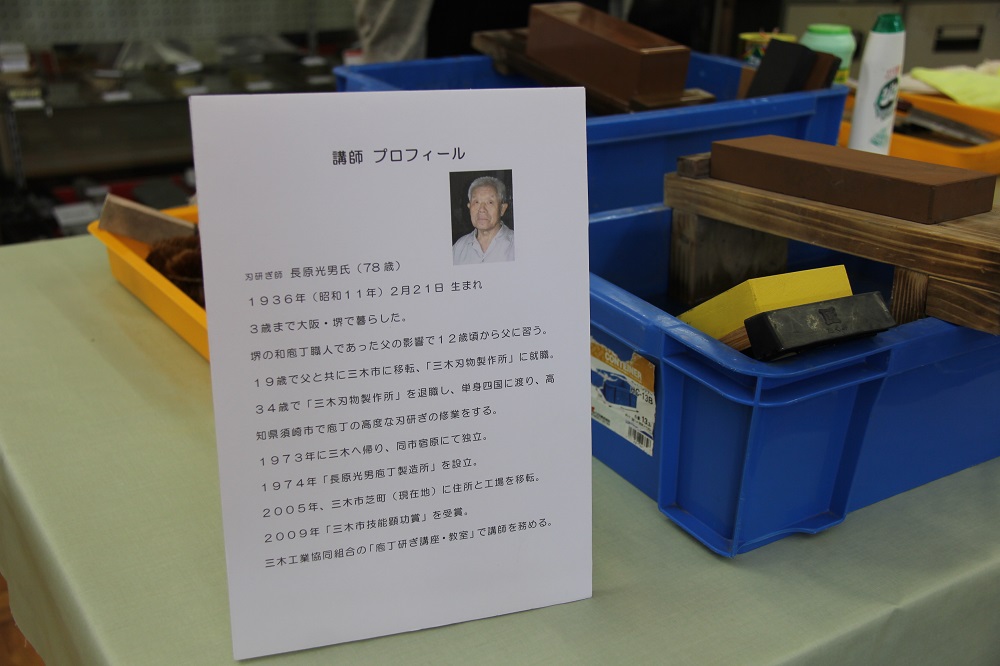 講師 プロフィール
刃研ぎ師 長原光男氏（78歳）
１９３６年（昭和１１年）２月２１日 生まれ
３歳まで大阪・堺で暮らした。
堺の和庖丁職人であった父の影響で１２歳頃から父に習う。
１９歳で父と共に三木市に移転、「三木刃物製作所」に就職。
３４歳で「三木刃物製作所」を退職し、単身四国に渡り、高
知県須崎市で庖丁の高度な刃研ぎの修業をする。
１９７３年に三木へ帰り、同市宿原にて独立。
１９７４年「長原光男庖丁製造所」を設立。
２００５年、三木市芝町（現在地）に住所と工場を移転。
２００９年「三木市技能顕功賞」を受賞。
三木工業協同組合の「庖丁研ぎ講座・教室」で講師を務める。
CONTAINER